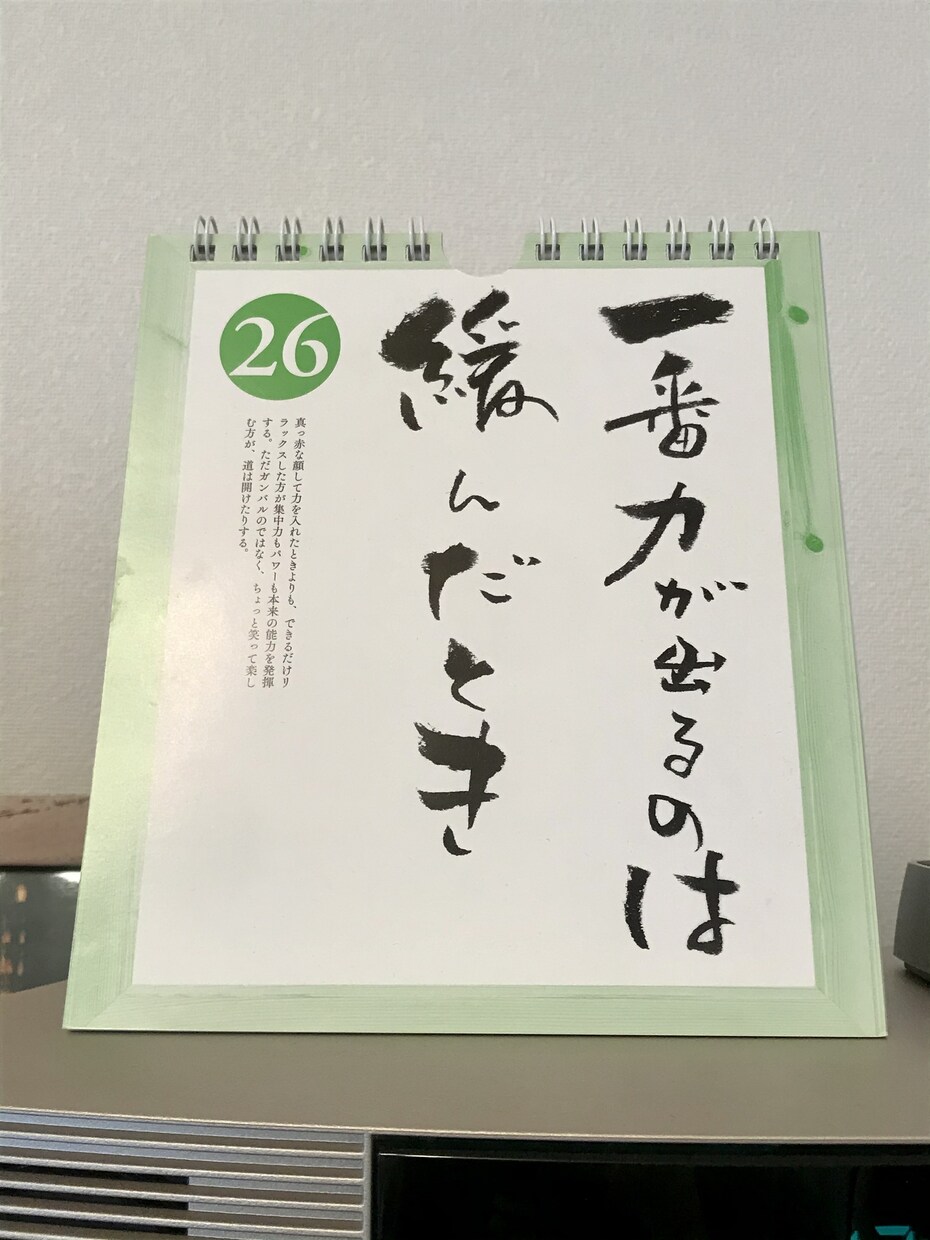 一番力が出るのは
緩んだとき
26
真っ赤な顔して力を入れたときよりも、できるだけリ
ラックスした方が集中力もパワーも本来の能力を発揮
する。ただガンバルのではなく、ちょっと笑って楽し
む方が、道は開けたりする。